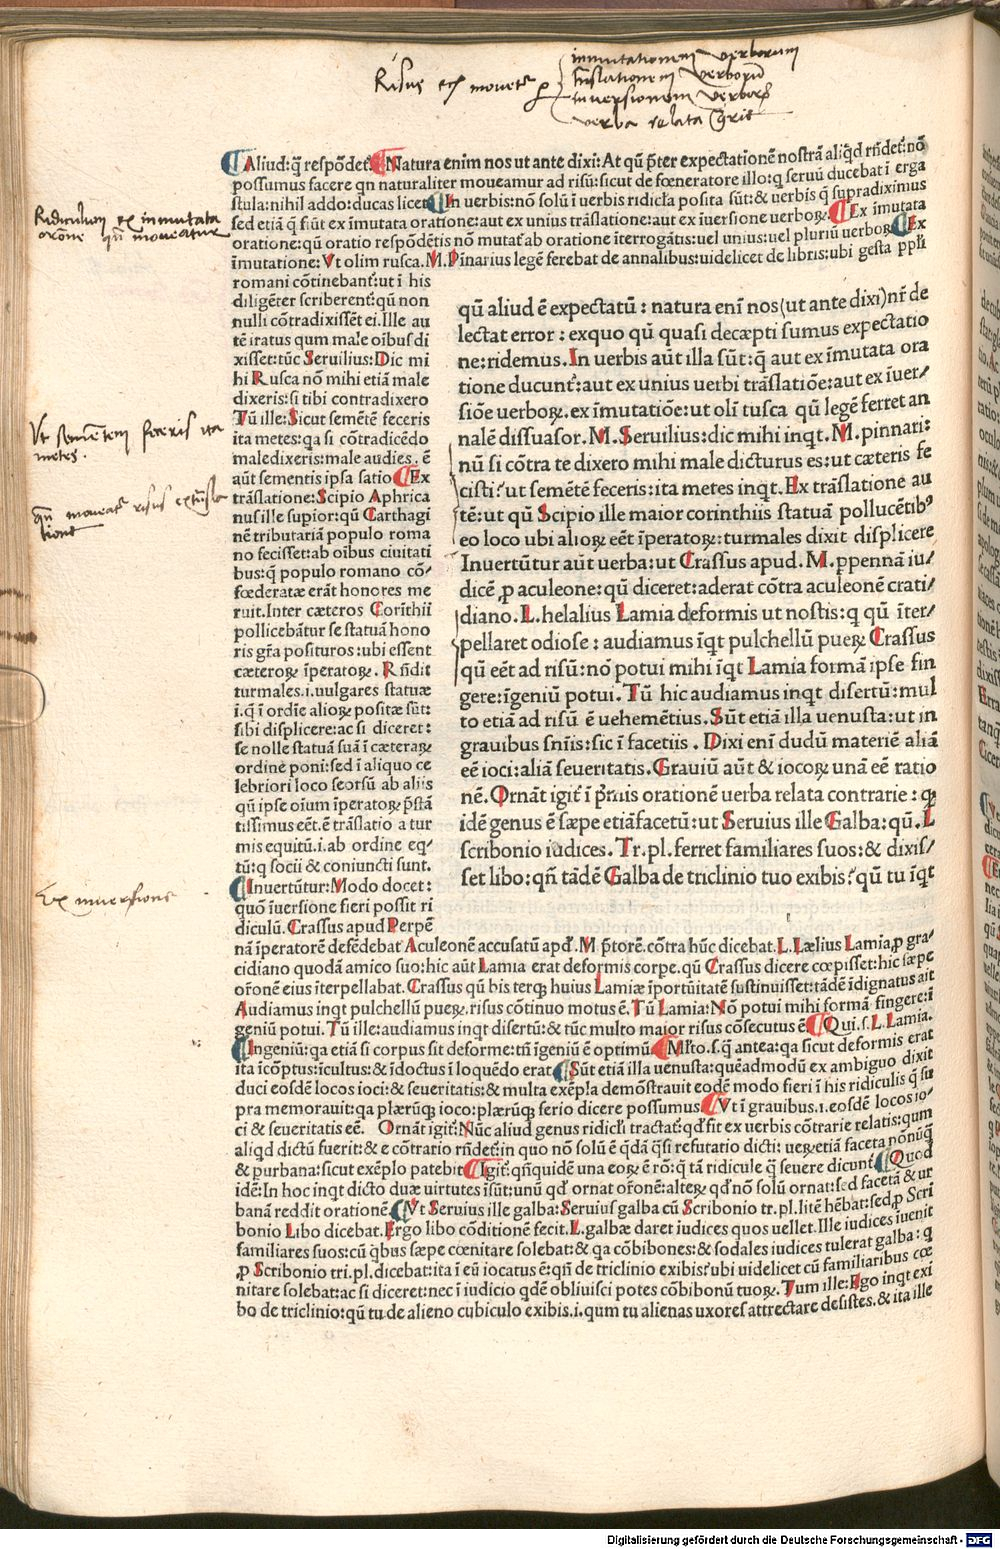 Risus etiam movetur per
immutationem verborum
translationem verborum
inversionem verborum
verba relata contrarie
Aliud: q̄ respōdet: Natura enim nos ut ante dixi: At qū p̄ter expectationē nostrā aliq̄d rn̄det: nō
possumus facere qn naturaliter moueamur ad risū: sicut de fœneratore illo: q seruū ducebat ī erga
stula: nihil addo: ducas licet In uerbis: nō solū ī uerbis ridicl̄a posita sūt: & uerbis q̄ supradiximus
sed etiā q̄ fiūt ex īmutata oratione: aut ex unius trāslatione: aut ex īuersione uerboꝝ. Ex īmutata
oratione: qū oratio respōdētis nō mutat̄ ab oratione īterrogātis: uel unius: uel pluriū uerboꝝ Ex
īmutatione: Vt olim rusca. M. Pinarius legē ferebat de annalibus: uidelicet de libris: ubi gesta ppl̄i
Ridiculum ex immutata
orōne qn̄ moveatur
romani cōtinebant̄: ut ī his
diligēter scriberent̄: qū non
nulli cōtradixissēt ei. Ille au
tē iratus qum male oībus di
xisset: tūc Seruilius: Dic mi
hi Rusca nō mihi etiā male
dixeris: si tibi contradixero
Tū ille: Sicut semētē feceris
ita metes: qa si cōtradicēdo
maledixeris: male audies. ē
aūt sementis ipsa satio Ex
trāslatione: Scipio Aphrica
nus ille supior: qū Carthagi
nē tributariā populo roma
no fecisset: ab oībus ciuitati
bus: q̄ populo romano cō⸗
fœderatæ erāt honores me
ruit. Inter cæteros Corīthii
pollicebātur se statuā hono
ris gr̄a posituros: ubi essent
cæteroꝝ īperatoꝝ. Rn̄dit
turmales. i. uulgares statuæ
i. q̄ ī ordīe alioꝝ positæ sūt:
sibi displicere: ac si diceret:
se nolle statuā suā ī cæteraꝝ
ordine poni: sed ī aliquo ce
lebriori loco seorsū ab aliis
qū ipse oīum īperatoꝝ p̄stā
tissimus eēt. ē trāslatio a tur
mis equitū. i. ab ordine eq⸗
tū: q socii & coniuncti sunt.
Inuertūtur: Modo docet:
quō īuersione fieri possit ri
diculū. Crassus apud Perpē
Vt sementem feceris ita
metes.
qn̄ moveatur risus ex transla
tione
Ex inversione
qū aliud ē expectatū: natura enī nos (ut ante dixi) nr̄ de
lectat error: ex quo qū quasi decæpti sumus expectatio
ne: ridemus. In uerbis aūt illa sūt: q̄ aut ex īmutata ora
tione ducunt̄: aut ex unius uerbi trāslatiōe: aut ex īuer⸗
siōe uerboꝝ. ex īmutatiōe: ut olī tusca qū legē ferret an
nalē dissuasor. M. Seruilius: dic mihi inqt. M. pinnari:
nū si cōtra te dixero mihi male dicturus es: ut cæteris fe
cisti? ut semētē feceris: ita metes inqt. Ex trāslatione au
tē: ut qū Scipio ille maior corinthiis statuā pollucētibꝰ
eo loco ubi alioꝝ eēt īperatoꝝ: turmales dixit displicere
Inuertūtur aūt uerba: ut Crassus apud. M. ppennā iu⸗
dicē, ꝓ aculeone: qū diceret: aderat cōtra aculeonē crati⸗
diano. L. helalius Lamia deformis ut nostis: q qū īter⸗
pellaret odiose: audiamus īqt pulchellū pueꝝ Crassus
qū eēt ad risū: nō potui mihi īqt Lamia formā ipse fin
gere: īgeniū potui. Tū hic audiamus inqt disertū: mul
to etiā ad risū ē uehemētius. Sūt etiā illa uenusta: ut in
grauibus sn̄iis: sic ī facetiis. Dixi enī dudū materiē aliā
eē ioci: aliā seueritatis. Grauiū aūt & iocoꝝ unā eē ratio
nē. Ornāt igit̄ ī p̄mis orationē uerba relata contrarie: q̄
idē genus ē sæpe etiā facetū: ut Seruius ille Galba: qū. L
scribonio iudices. Tr. pl. ferret familiares suos: & dixis⸗
set libo: qn̄ tādē Galba de triclinio tuo exibis? qū tu īqt
nā īperatorē defēdebat Aculeonē accusatū apd̄. M p̄torē. cōtra hūc dicebat. L. Lælius Lamia, ꝓ gra⸗
cidiano quodā amico suo: hic aūt Lamia erat deformis corpe. qū Crassus dicere cœpisset: hic sæpe
or̄onē eius īterpellabat. Crassus qū bis terqꝫ huius Lamiæ īportūitatē sustinuisset: tādē īdignatus ait
Audiamus inqt pulchellū pueꝝ. risus cōtinuo motus ē. Tū Lamia: Nō potui mihi formā fingere: ī
geniū potui. Tū ille: audiamus inqt disertū: & tūc multo maior risus cōsecutus ē Qui. s. L. Lamia.
Ingeniū: qa etiā si corpus sit deforme: tn̄ īgeniū ē optimū Ml̄to. s. q̄ antea: qa sicut deformis erat
ita īcōptus: īcultus: & īdoctus ī loquēdo erat Sūt etiā illa uenusta: quēadmodū ex ambiguo dixit
duci eosdē locos ioci: & seueritatis: & multa exēpla demōstrauit eodē modo fieri ī his ridiculis q̄ su
pra memorauit: qa plærūqꝫ ioco: plærūqꝫ serio dicere possumus Vt ī grauibus. i. eosdē locos io⸗
ci & seueritatis eē. Ornāt igit̄: Nūc aliud genus ridicl̄i tractat: qd̄ fit ex uerbis cōtrarie relatis: qum
aliqd dictū fuerit: & e cōtrario rn̄det: in quo nō solū ē q̄dā q̄si refutatio dicti: uerꝫ etiā faceta nōnūq̄
& purbana: sicut exēplo patebit Igit̄: qn̄quidē una eoꝝ ē rō: q̄ tā ridicule q̄ seuere dicunt̄ Quod
idē: In hoc inqt dicto duæ uirtutes īsūt: unū qd̄ ornat or̄onē: alteꝝ qd̄ nō solū ornat: sed facetā & ur
banā reddit orationē. Vt Seruius ille galba: Seruius galba cū Scribonio tr. pl. litē hēbat: sed, ꝓ Scri
bonio Libo dicebat. Ergo libo cōditionē fecit. L. galbæ daret iudices quos uellet. Ille iudices iuenit
familiares suos: cū q̄bus sæpe cœnitare solebat: & qa cōbibones: & sodales iudices tulerat galba: q
ꝓ Scribonio tri. pl. dicebat: ita ī eū iocatus ē: qn̄ de triclinio exibis? ubi uidelicet cū familiaribus cœ
nitare solebat: ac si diceret: nec ī iudicio qdē obliuisci potes cōbibonū tuoꝝ. Tum ille: Ago inqt exi
bo de triclinio: qū tu de alieno cubiculo exibis. i. qum tu alienas uxores attrectare desistes. & ita ille
Digitalisierung gefördert durch die Deutsche Forschungsgemeinschaft - DFG